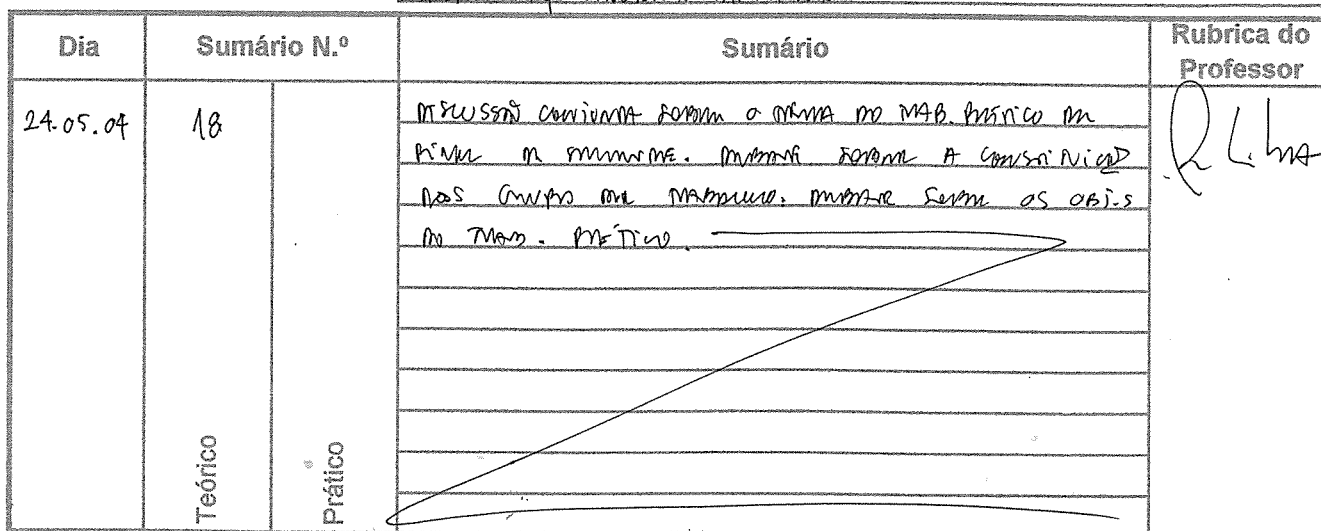 Dia Sumário N.º Sumário Rubrica do Professor
24.05.04 18 DISCUSSÃO CONJUNTA SOBRE O TEMA DO TRAB. PRÁTICO DE
FINAL DE SEMESTRE. DEBATE SOBRE A CONSTITUIÇÃO
DOS GRUPOS DE TRABALHO. DEBATE SOBRE OS OBJ.S
DO TRAB. PRÁTICO.
Teórico Prático